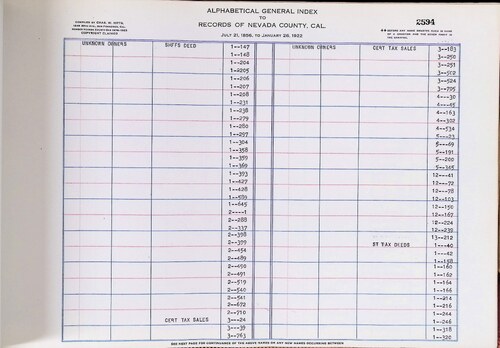 ALPHABETICAL GENERAL INDEX
TO
RECORDS OF NEVADA COUNTY, CAL.
JULY 21, 1856, TO JANUARY 28, 1922
2594
COPYRIGHT CLAIMED
UNKNOWN OWNERS SHFFS DEED 1--147
1--148
1--204
1--205
1--206
1--207
1--208
1--231
1--238
1--279
1--280
1--297
1--304
1--358
1--359
1--369
1--393
1--427
1--428
1--589
1--645
2----1
2--288
2--337
2--398
2--399
2--454
2--489
2--490
2--491
2--519
2--540
2--541
2--672
2--710
CERT TAX SALES 3---24
3---39
3--763
UNKNOWN OWNERS CERT TAX SALES 3--183
3--250
3--251
3--502
3--524
3--795
4---30
4---45
4--163
4--302
4--534
5---23
5---69
5--191
5--200
5--365
12---41
12---72
12---78
12--103
12--150
12--167
12--224
12--239
13--212
BY TAX DEEDS 1---40
1---42
1--158
1--160
1--162
1--164
1--166
1--214
1--216
1--244
1--246
1--318
1--320
SEE NEXT PAGE FOR CONTINUANCE OF THE ABOVE NAMES OR ANY NEW NAMES OCCURRING BETWEEN